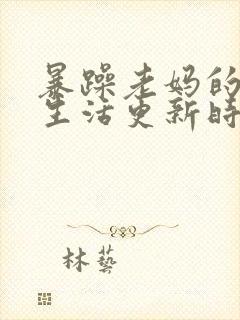 暴躁老妈的
生活更新时
林藝